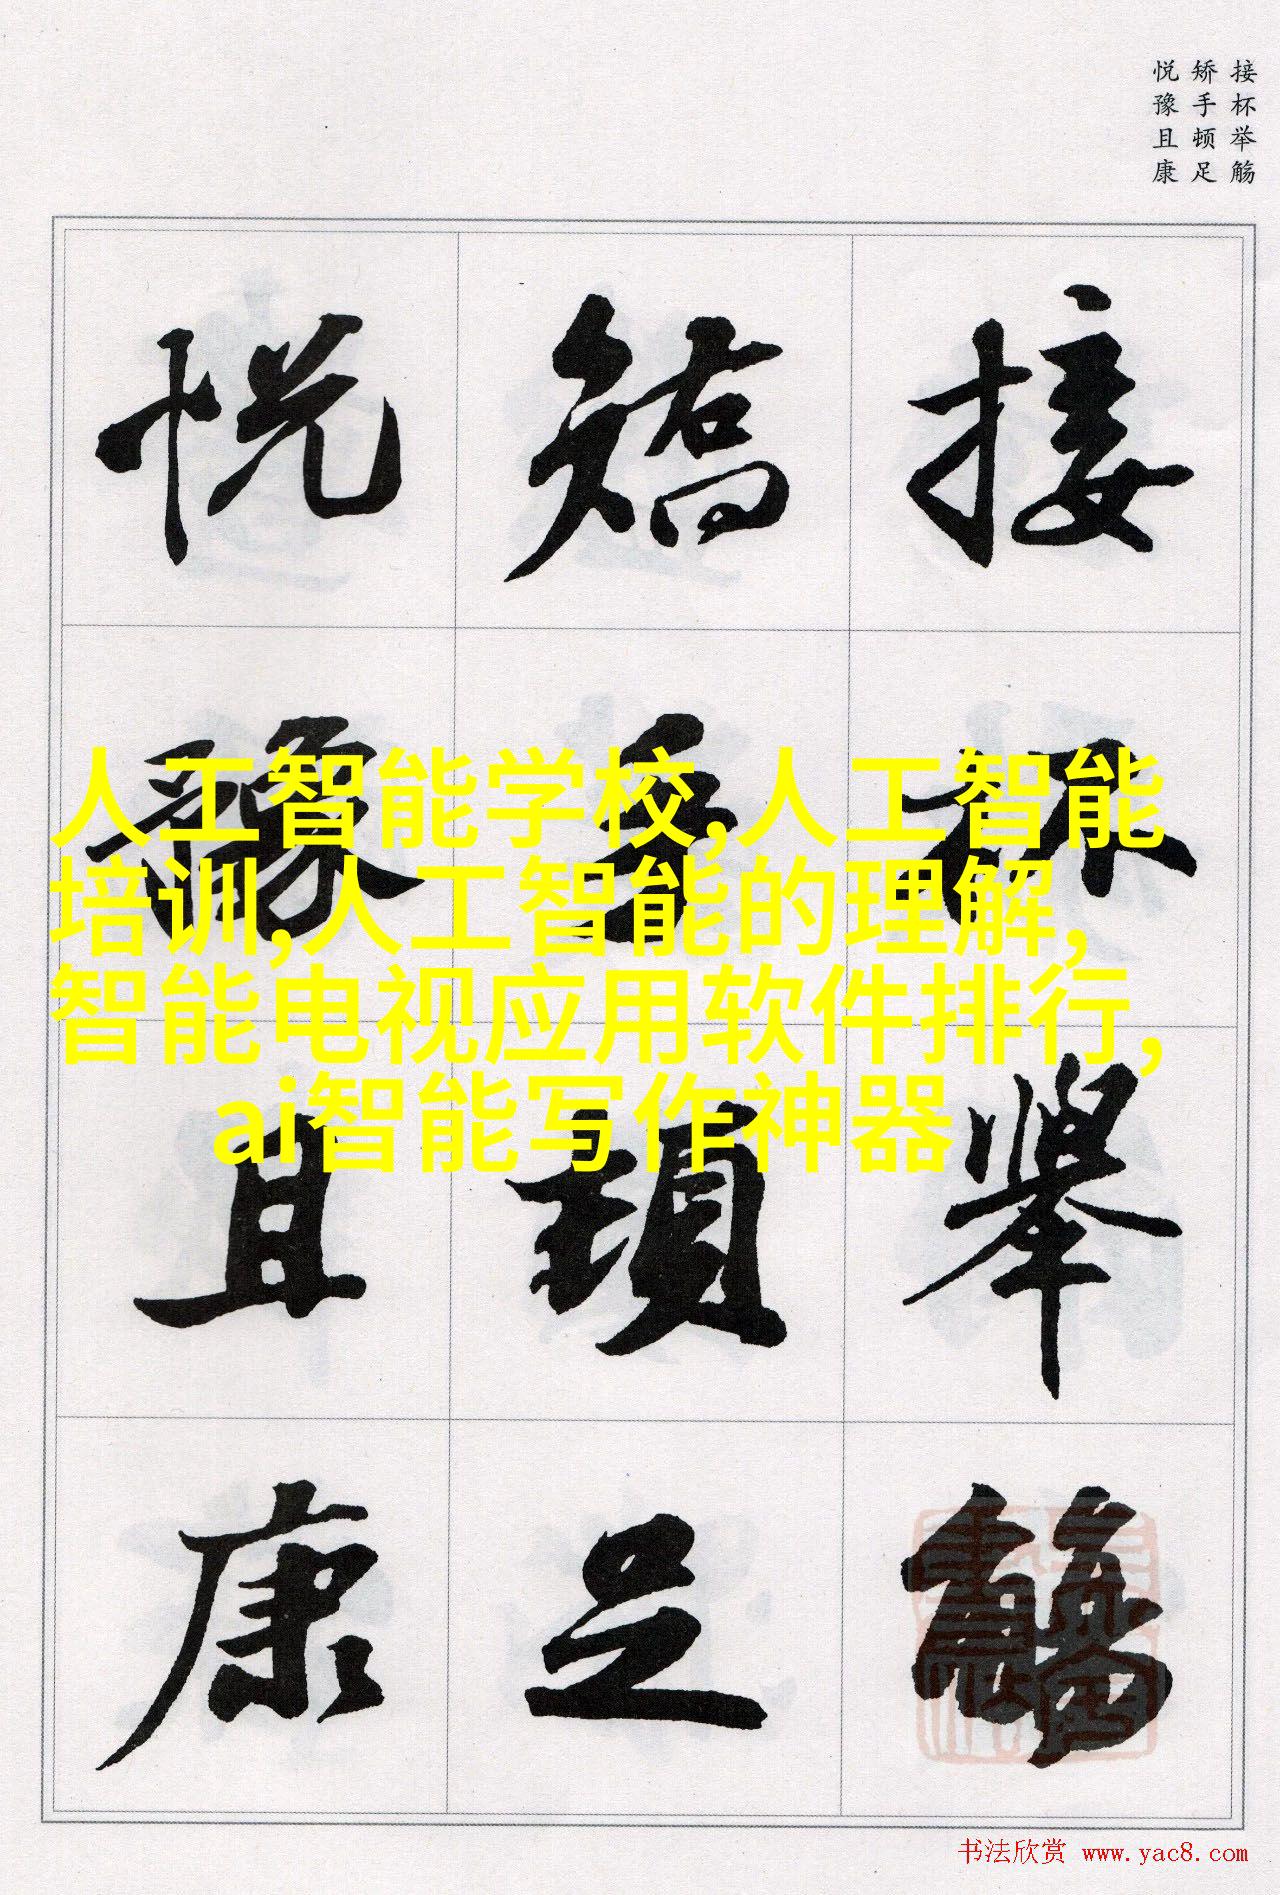 接杯举觞
矫手顿足
悦豫且康
接杯舉觴
矯手頓足
悦豫且康
人工智能学校,人工智能
培训,人工智能的理解,
智能电视应用软件排行,
ai智能写作神器
书法欣赏 www.yac8.com